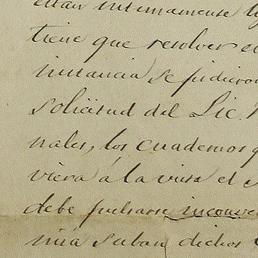 tiene que resolver e
instancia se pidiero
solicitud del Lic.
nales, los cuadernos q
viera á la vista el
debe fuelsarse inconve
nia suban dichos